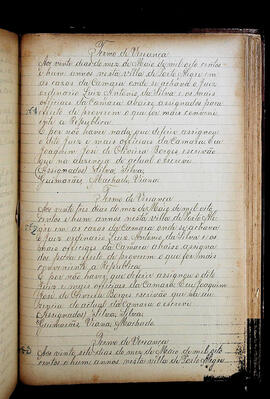 Termo de Vereança
Aos vinte dias do mez de Maio de mil oito centos
e hum annos nesta villa de Porto Alegre em
as cazas da Camara onde se achava o Juiz
ordinario Luiz Antonio da Silva e os mais
officiaes da Camara abaixo assignados para
effeito de proverem o que for mais conveni
ente a Republica.
E por não haver nada que deferir assignou
o dito Juiz e mais officiaes da Camara. Eu
Joaquim José de Oliveira Borges escrivão
que na absencia do actual o escrevi
(Assignados) Silva, Silva,
Guimarães, Machado, Viana.
Termo de Vereança
Aos vinte trez dias do mez de Maio de mil oito
centos e hum annos nesta villa de Porto Ale
gre em as cazas da Camara onde se achava
o Juiz ordinario Luiz Antonio da Silva e os
mais officiaes da Camara abaixo assigna
dos para effeito de proverem o que for mais
conveniente a Republica.
E por não haver que deferir assignou o dito
Juiz e mais officiaes da Camara. Eu Joaquim
José de Oliveira Borges escrivão que
do actual da Camara o escrevi
(Assignados) Silva, Silva,
Guimarães, Viana, Machado
Termo de Vereança
Aos vinte sete dias do mez de Maio de mil oito
centos e hum annos nesta villa de Porto Alegre